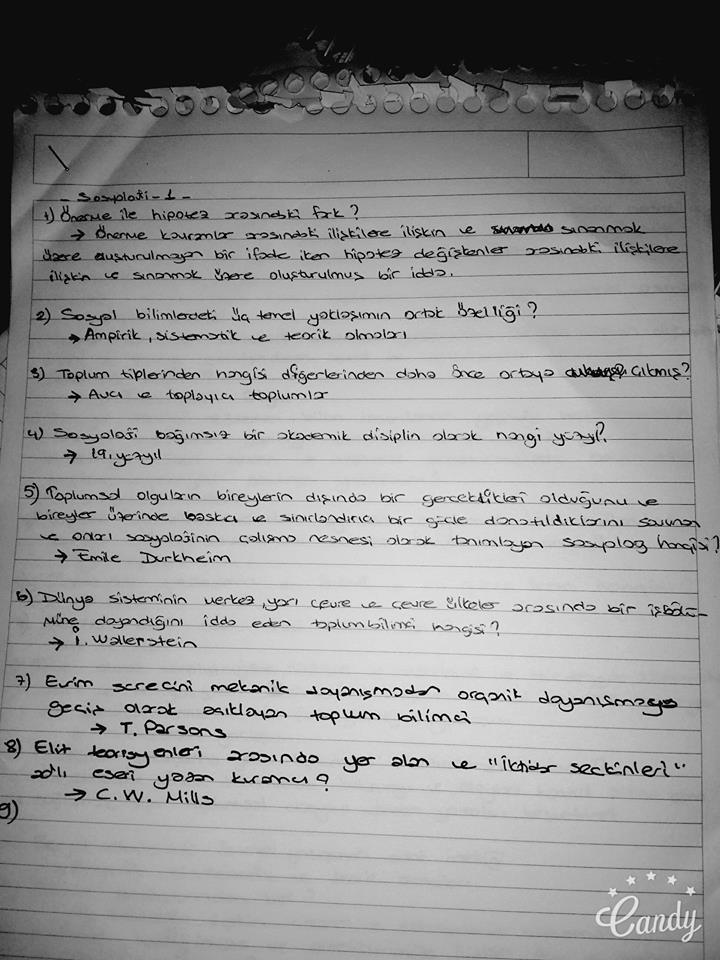 - Sosyoloji - 1 -
1) Önerme ile hipotez arasındaki fark?
→ Önerme kavramlar arasındaki ilişkilere ilişkin ve sınanmak
üzere oluşturulmayan bir ifade iken hipotez değişkenler arasındaki ilişkilere
ilişkin ve sınanmak üzere oluşturulmuş bir iddia.
2) Sosyal bilimlerdeki üç temel yaklaşımın ortak özelliği?
→ Ampirik, sistematik ve teorik olmaları
3) Toplum tiplerinden hangisi diğerlerinden daha önce ortaya çıkmış?
→ Avcı ve toplayıcı toplumlar
4) Sosyoloji bağımsız bir akademik disiplin olarak hangi yüzyıl?
→ 19. yüzyıl
5) Toplumsal olguların bireylerin dışında bir gerçeklikleri olduğunu ve
bireyler üzerinde baskıcı ve sınırlandırıcı bir güçle donatıldıklarını savunan
ve onları sosyolojinin çalışma nesnesi olarak tanımlayan sosyolog hangisi?
→ Emile Durkheim
6) Dünya sisteminin merkez, yarı çevre ve çevre ülkeler arasında bir işbölü-
müne dayandığını iddia eden toplumbilimci hangisi?
→ İ. Wallerstein
7) Evrim sürecini mekanik dayanışmadan organik dayanışmaya
geçiş olarak açıklayan toplum bilimci
→ T. Parsons
8) Elit teorisyenleri arasında yer alan ve "İktidar seçkinleri"
adlı eseri yazan kuramcı?
→ C. W. Mills
9)
Candy